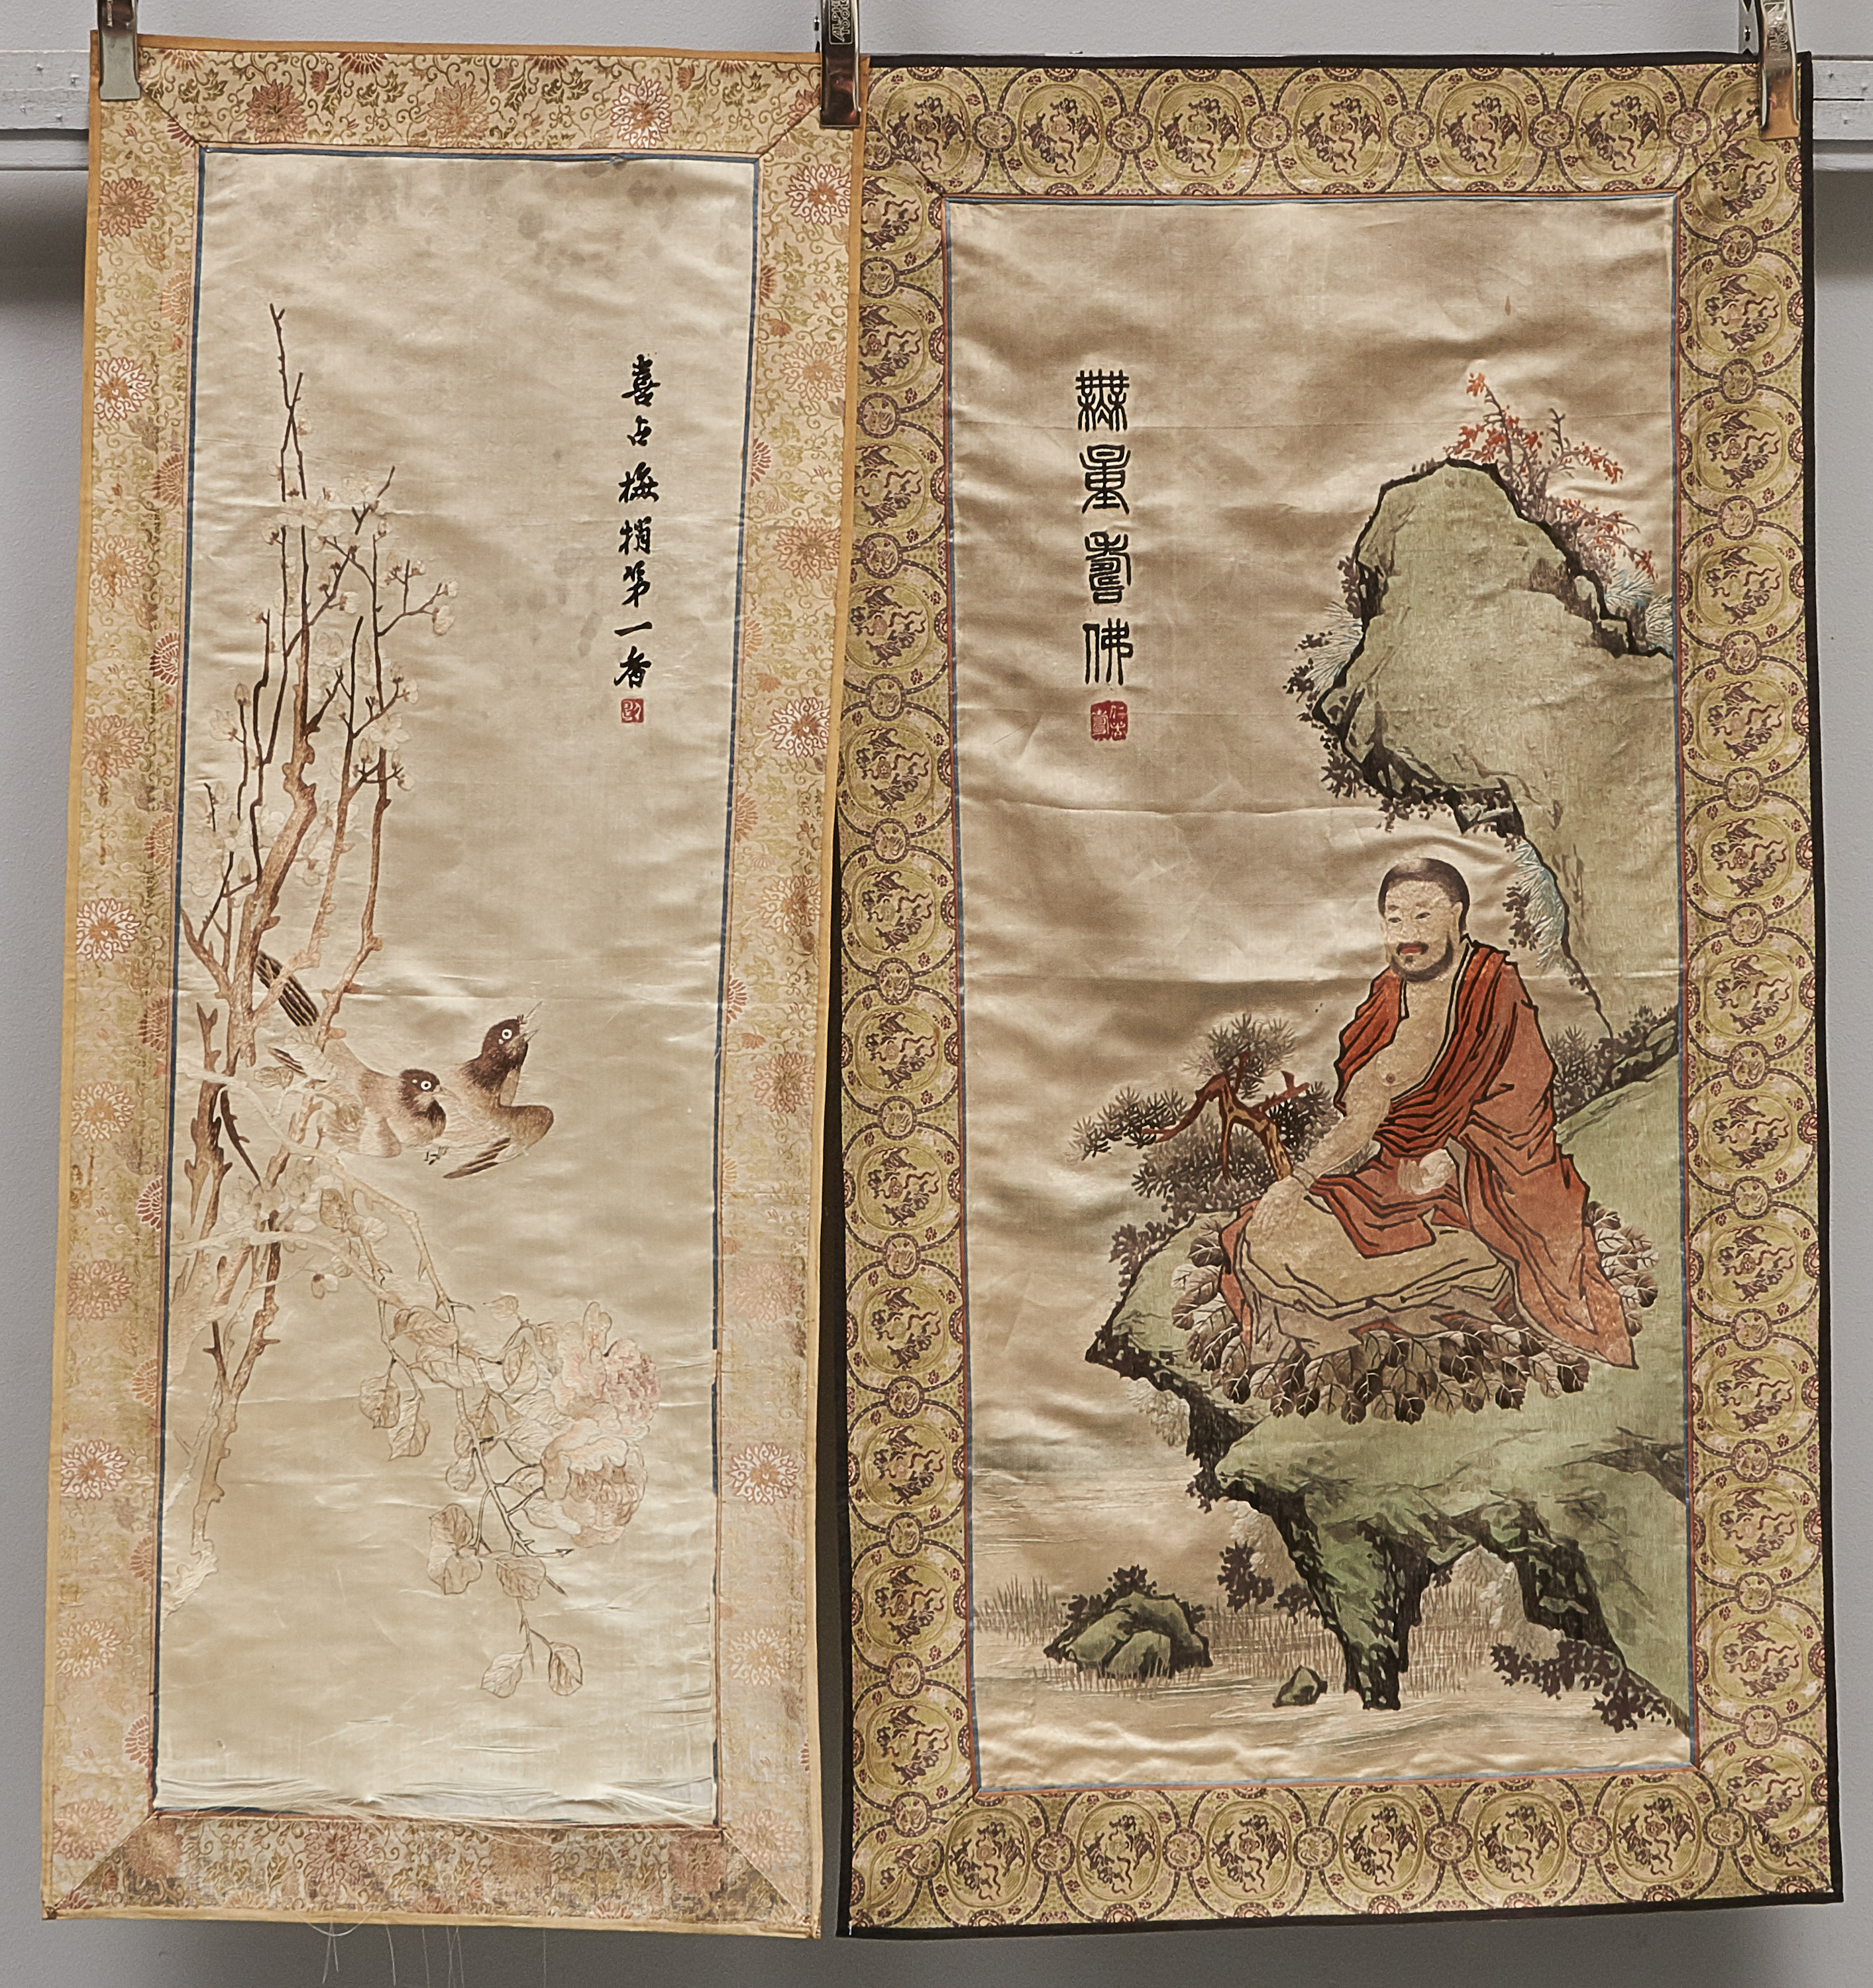 喜占梅梢第一春
無量壽佛